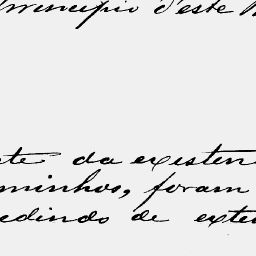 Principio d'este
te da existen
minhos, foram
edindo de exte